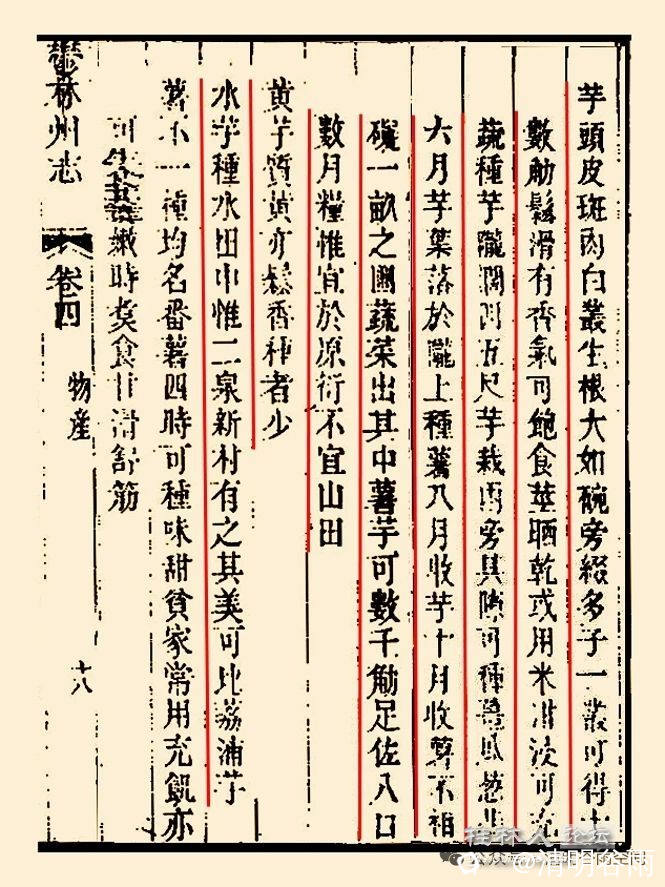 芋頭皮斑肉白叢生根大如碗旁綴多子一叢可得十
數觔鬆滑有香氣可飽食莖晒乾或用米泔浸可充
蔬種芋隴濶四五尺芋栽兩旁其隙可種薑瓜葱韭
六月芋葉落於隴上種薯八月收芋十月收薯不相
礙一畝之圃蔬菜出其中薯芋可數千觔足佐八口
數月糧惟宜於原衍不宜山田
黄芋質黄亦鬆香種者少
水芋種水田中惟二泉新村有之其美可比荔浦芋
薯不一種均名番薯四時可種味甜貧家常用充飢亦
可嫩時煑食甘滑舒筋
鬱林州志 卷四 物産 十八
桂林人论坛
公众号
@清明谷雨